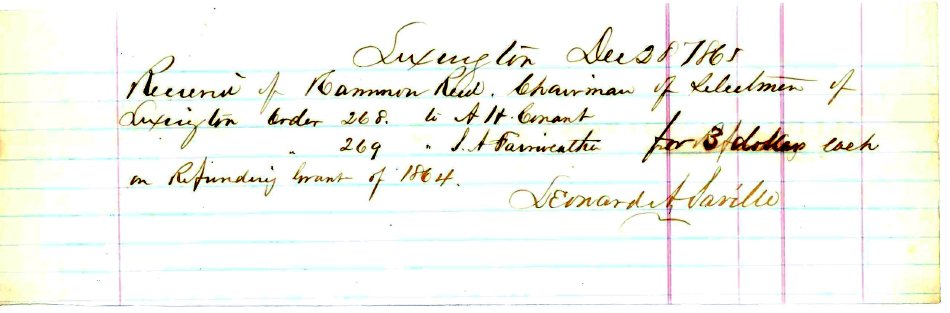 Lexington Dec 28 1865
Received of Hammon Reed. Chairman of Selectmen of
Lexington order 268. to A H. Conant
" 269 " S. A Fairweather for 3 dollars each
on Refunding Grant of 1864.
Leonard A Saville